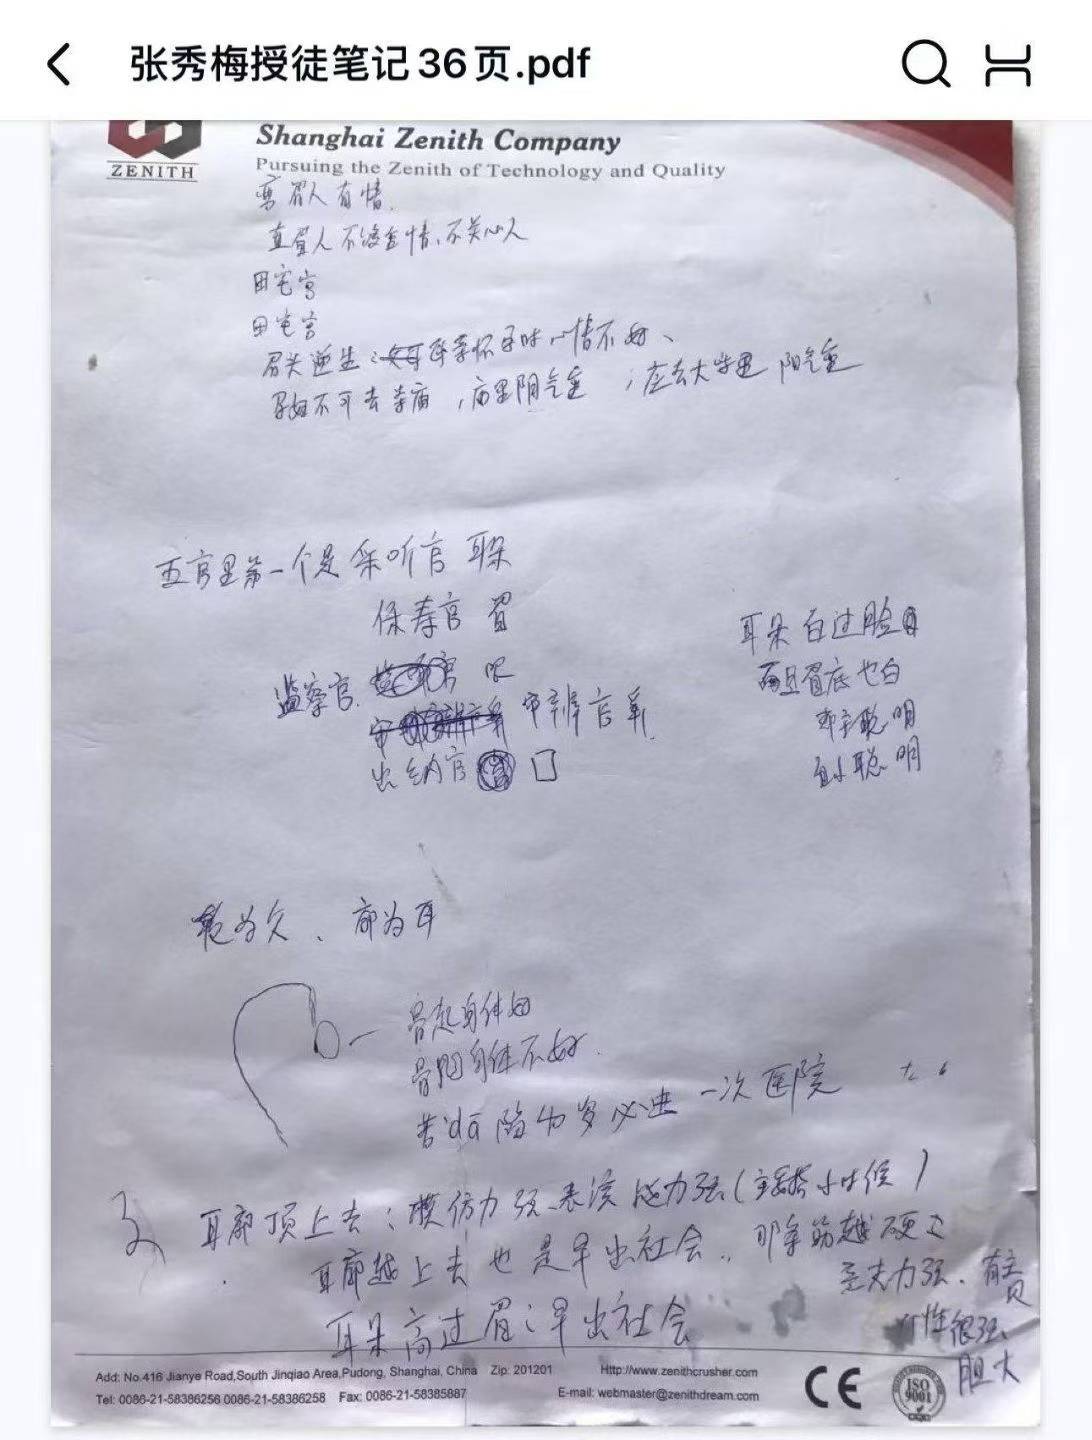 张秀梅授徒笔记36页.pdf
ZENITH
Shanghai Zenith Company
Pursuing the Zenith of Technology and Quality
弯眉人有情.
直眉人不注重情、不关心人
田宅宫
田宅宫
眉头逆生:母亲怀孕时心情不好、
孕妇不可去寺庙,庙里阴气重;应去大学里 阳气重
五官里第一个是 采听官 耳朵
保寿官 眉
监察官. 眼
审辨官 鼻.
出纳官 口
耳朵白过脸
而且眉底也白
非常聪明
聪明
轮为父、廓为耳
骨起身体好
骨凹身体不好.
若dā陷为岁必进一次医院
耳廓顶上去:模仿力强、表演能力强(小时候)
耳廓越上去也是早出社会..那条筋越硬
力强、有责
性很强、
胆大
耳朵高过眉:早出社会
Add: No.416 Jianye Road,South Jinqiao Area,Pudong, Shanghai, China Zip: 201201 Http://www.zenithcrusher.com
Tel: 0086-21-58386256 0086-21-58386258 Fax: 0086-21-58385887 E-mail: webmaster@zenithdream.com
CE
ISO 9001